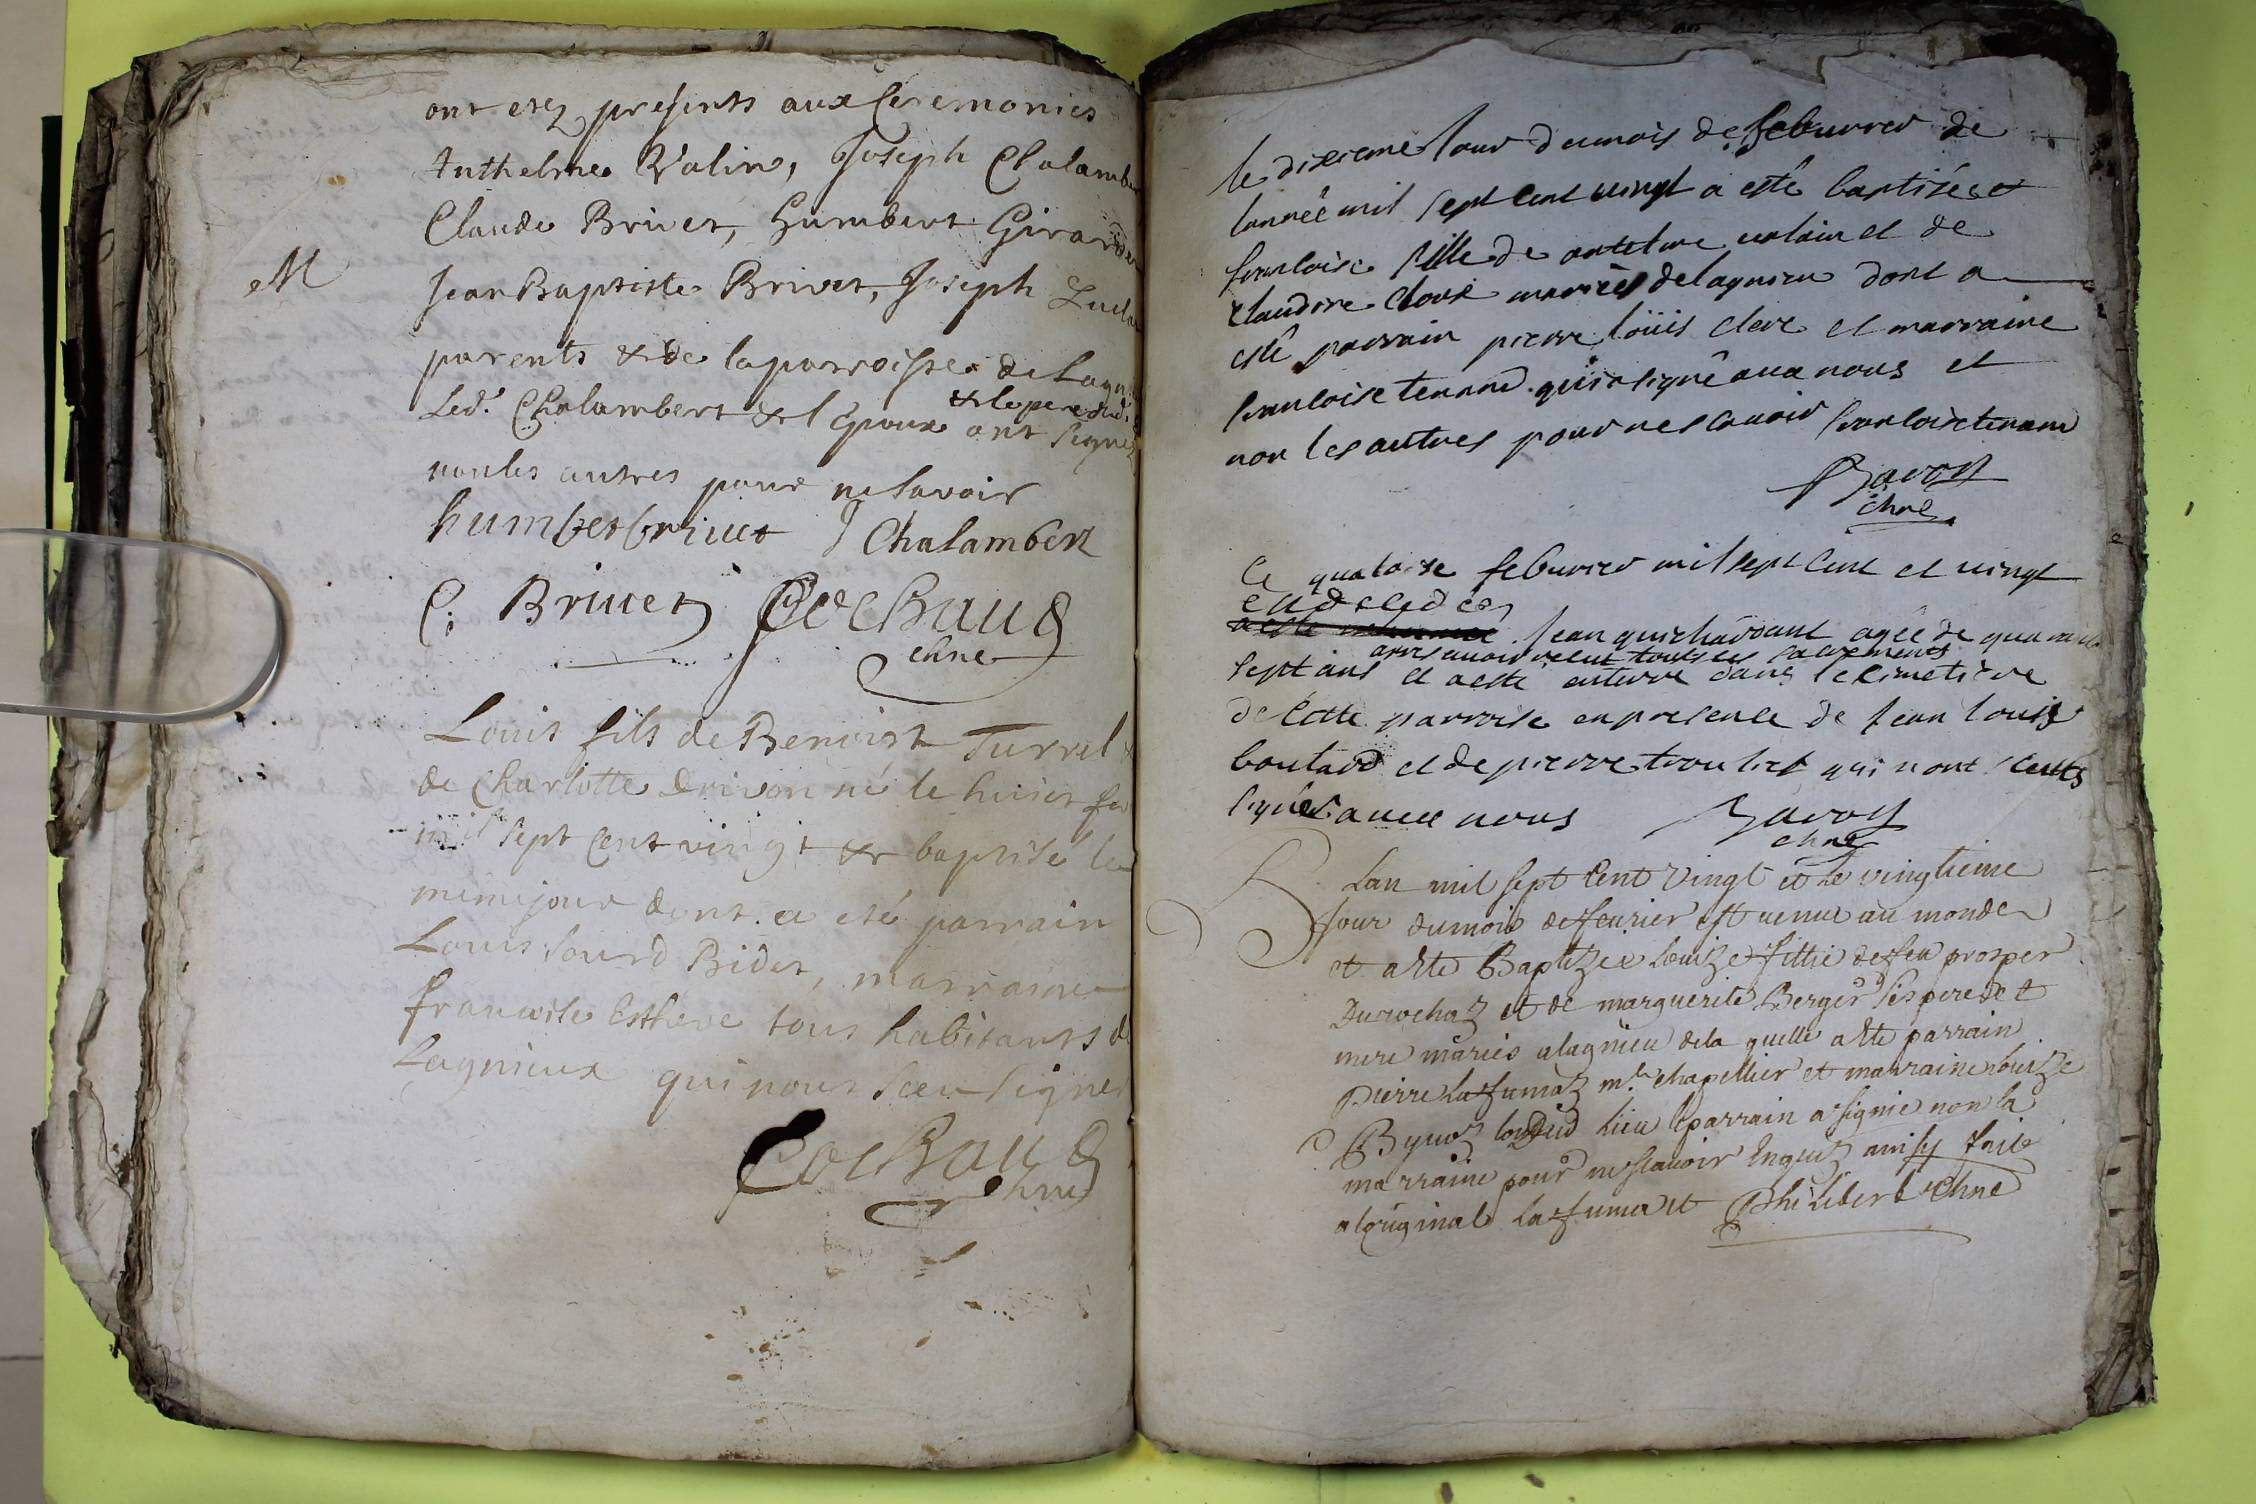 ont etez presents aux Ceremonies
Anthelme Valin, Joseph Chalamber
Claude Brivet, Humbert Girard
M
Jean Baptiste Brivet, Joseph
parents & de la parroisse de Lagn
& le pere dud.
Led. Chalambert & l'Epoux ont signez
non les autres pour ne savoir
humbert brivet J Chalambert
C. Brivet Cochaud
chne
Louis fils de Benoist Turrel &
de Charlotte Drivon né le huict fev
mil sept Cent vingt & baptisé le
mème jour dont a eté parrain
Louis Sourd Bidet, marraine
francoise Esthere tous habitants de
Lagnieux qui n'ont sceu signer
Cochaud
chne
le dixieme Jour du mois de feburier de
lannée mil sept cent vingt a esté baptisée
francoise fille de antelme valain et de
claudine mariés de lagnieu dont a
esté parrain pierre loüis clerc et marraine
francoise tenand qui a signé avec nous et
non les autres pour ne scavoir francoise tenand
Savoy
chne
Ce quatorse feburier mil sept Cent et vingt
est decedez
a esté Jean guichardant agée de quarante
apres avoir receut touts les sacrements
sept ans et a esté enterre dans le cimetiere
de cette parroise en presence de Jean louis
boutard et de pierre qui n'ont sceuts
signer avec nous Savoy
chne
B
Lan mil sept Cent vingt et le vingtieme
Jour du mois de feurier est venue au monde
et a este Baptizee Louize fillie de feu prosper
Durochaz et de marguerite Berger ses pere et
mere mariés a lagnieu de la quelle a este parrain
Pierre Lafumaz m.re chapellier et marraine Louize
dud lieu le parrain a signie non la
marraine pour ne scavoir Enquis ainsy faict
a loriginal Lafuma et Philibert chne